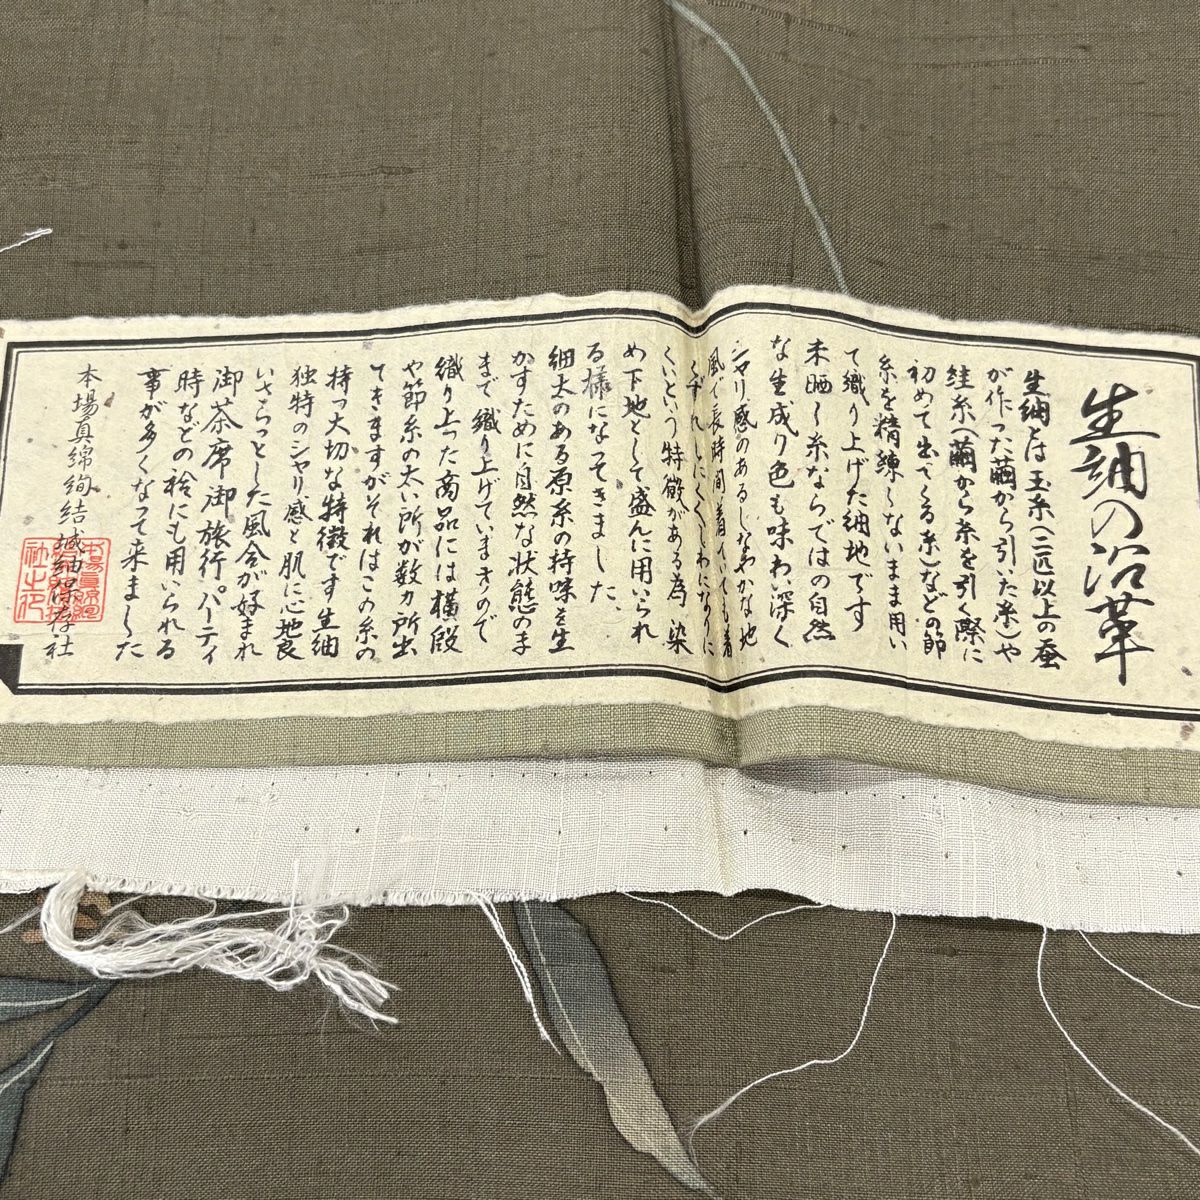 生紬の沿革
生紬とは玉糸(二匹以上の蚕
が作った繭から引いた糸)や
絓糸(繭から糸を引く際に
初めて出てくる糸)などの節
糸を精練しないまま用い
て織り上げた紬地です
未晒し糸ならではの自然
な生成り色も味わい深く
シャリ感のあるしなやかな地
風で長時間着ていても着
くずれしにくくしわになりに
くいという特徴がある為染
め下地として盛んに用いられ
る様になってきました、
細太のある原糸の持味を生
かすために自然な状態のま
まで織り上げていますので
織り上った商品には横段
や節糸の太い所が数ヵ所出
てきますがそれはこの糸の
持つ大切な特徴です生紬
独特のシャリ感と肌に心地良
いさらっとした風合が好まれ
御茶席御旅行パーティ
時などの袷にも用いられる
事が多くなって来ました
本場真綿絢結城紬保存社